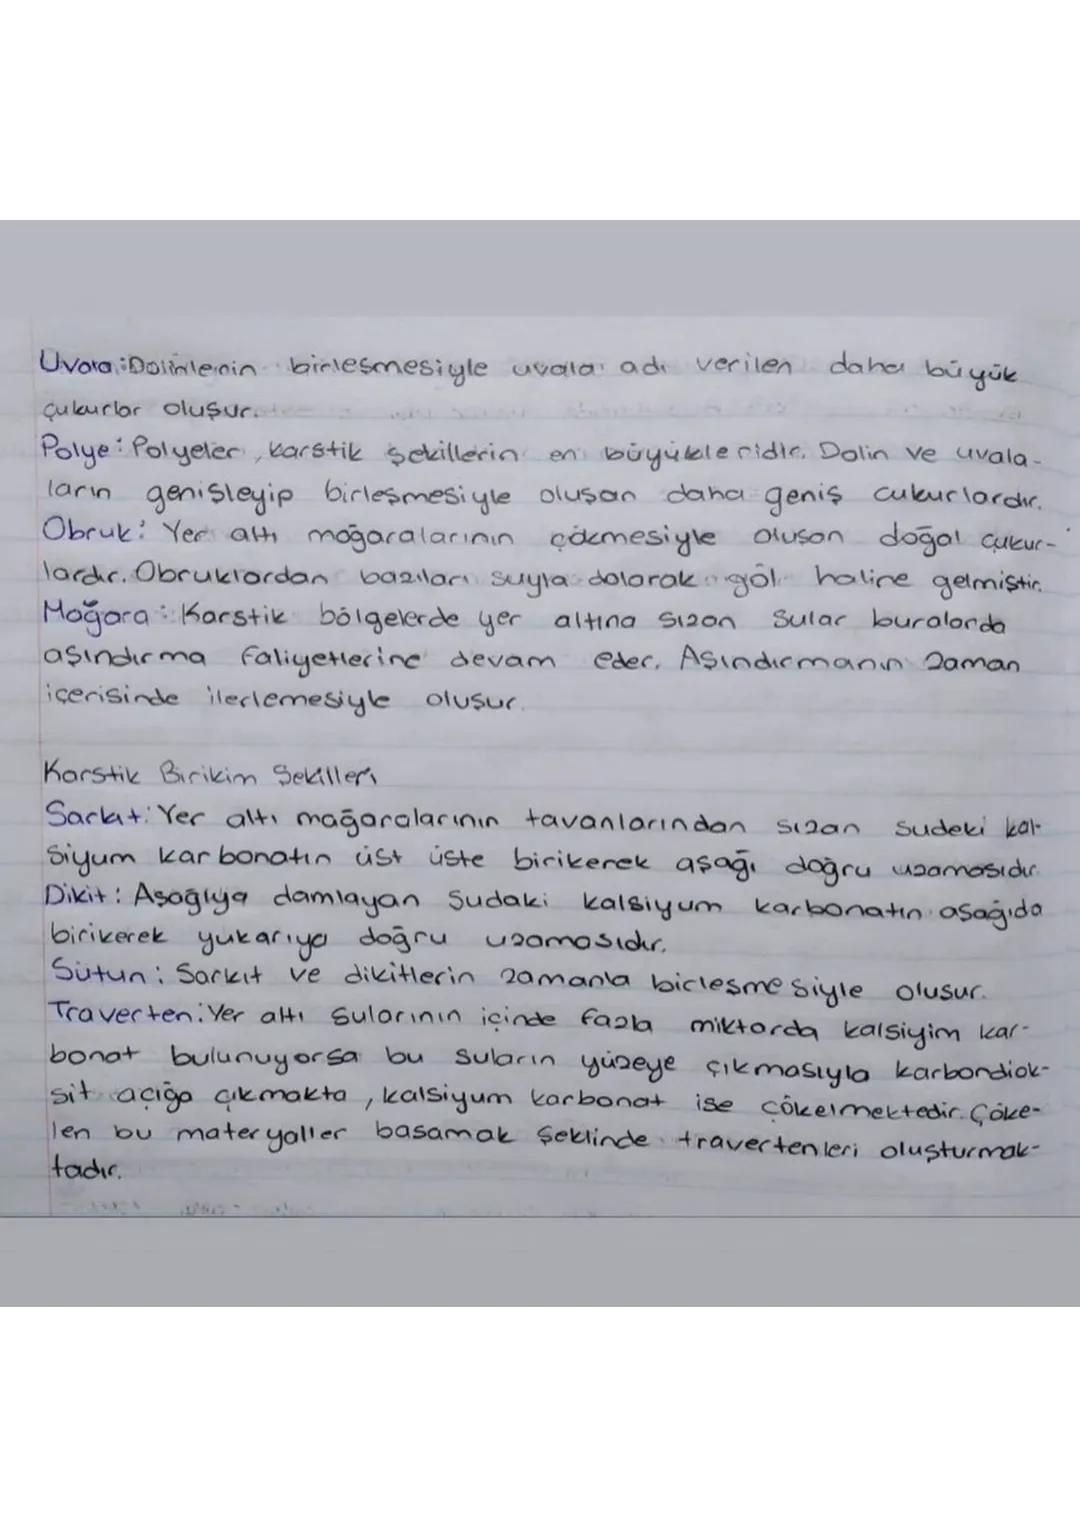 Uvala: Dolinlerin birleşmesiyle uvala adı verilen daha büyük
çukurlar oluşur.
Polye: Polyeler, karstik şekillerin en büyükleridir. Dolin ve uvala-
ların genişleyip birleşmesiyle oluşan daha geniş çukurlardır.
Obruk: Yer altı mağaralarının çökmesiyle oluşan doğal çukur-
lardır. Obruklardan bazıları suyla dolarak göl haline gelmiştir.
Mağara: Karstik bölgelerde yer altına sızan sular buralarda
aşındırma faliyetlerine devam eder. Aşındırmanın zaman
içerisinde ilerlemesiyle oluşur.
Karstik Birikim Şekilleri
Sarkıt: Yer altı mağaralarının tavanlarından sızan sudeki kal-
siyum karbonatın üst üste birikerek aşağı doğru uzamasıdır.
Dikit: Aşağıya damlayan sudaki kalsiyum karbonatın aşağıda
birikerek yukarıya doğru uzamasıdır.
Sütun: Sarkıt ve dikitlerin zamanla birleşmesiyle oluşur.
Traverten: Yer altı sularının içinde fazla miktarda kalsiyim kar-
bonat bulunuyorsa bu suların yüzeye çıkmasıyla karbondiok-
sit açığa çıkmakta, kalsiyum karbonat ise çökelmektedir. Çöke-
len bu materyaller basamak şeklinde travertenleri oluşturmak-
tadır.